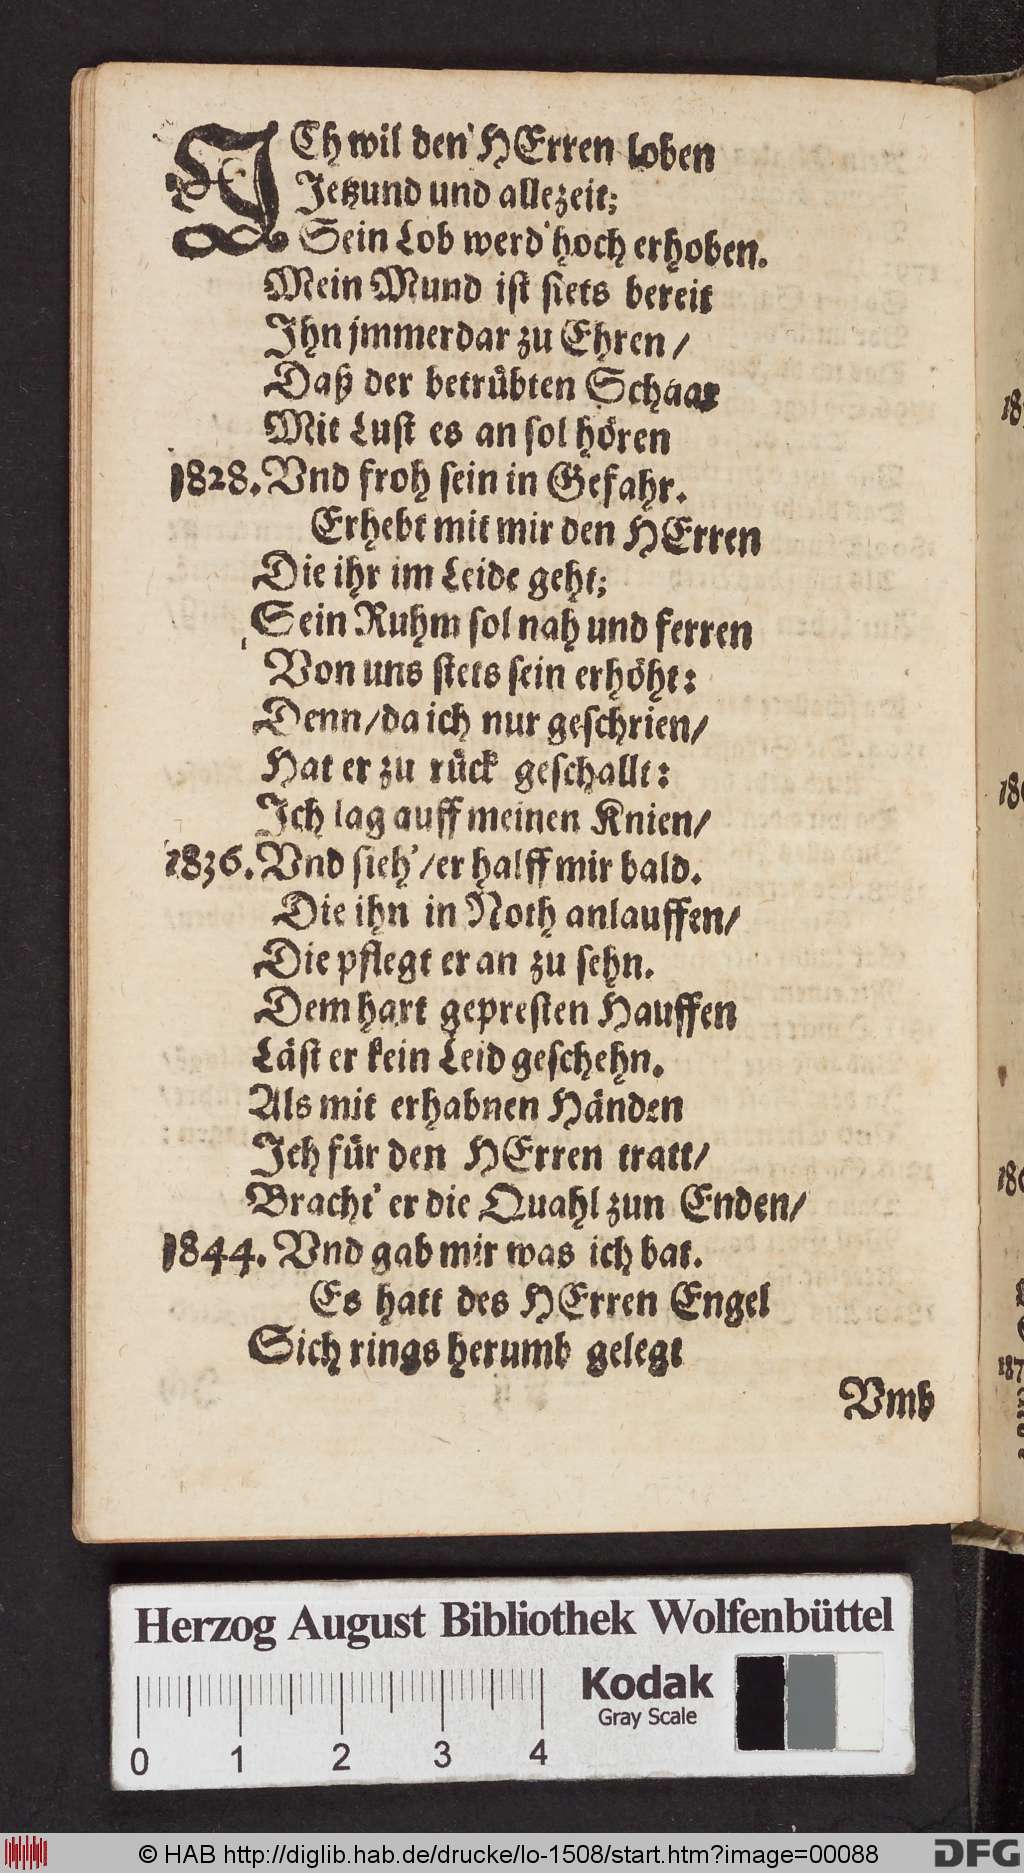 ICh wil den HErren loben
Jetzund und allezeit;
Sein Lob werd' hoch erhoben.
Mein Mund ist stets bereit
Jhn jmmerdar zu Ehren /
Daß der betrübten Schaar
Mit Lust es an sol hören
1828. Vnd froh sein in Gefahr.
Erhebt mit mir den HErren
Die ihr im Leide geht;
Sein Ruhm sol nah und ferren
Von uns stets sein erhöht:
Denn / da ich nur geschrien /
Hat er zu rück geschallt:
Jch lag auff meinen Knien /
1836. Vnd sieh' / er halff mir bald.
Die ihn in Noth anlauffen /
Die pflegt er an zu sehn.
Dem hart gepresten Hauffen
Läst er kein Leid geschehn.
Als mit erhabnen Händen
Jch für den HErren tratt /
Bracht' er die Quahl zun Enden /
1844. Vnd gab mir was ich bat.
Es hatt des HErren Engel
Sich rings herumb gelegt
Vmb
Herzog August Bibliothek Wolfenbüttel
Kodak
Gray Scale
0 1 2 3 4
© HAB http://diglib.hab.de/drucke/lo-1508/start.htm?image=00088
DFG